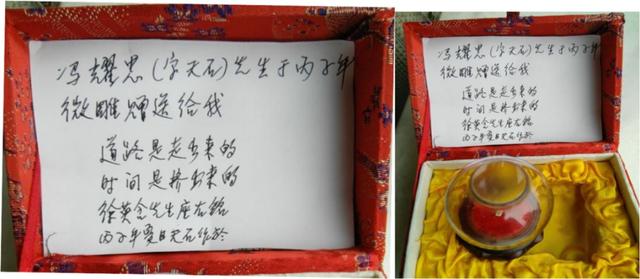 冯耀忠(字天石)先生于丙子年
微雕赠送给我
道路是走出来的
时间是挤出来的
徐英含先生座右铭
丙子年夏日天石作於
冯耀忠(字天石)先生于丙子年
微雕赠送给我
道路是走出来的
时间是挤出来的
徐英含先生座右铭
丙子年夏日天石作於